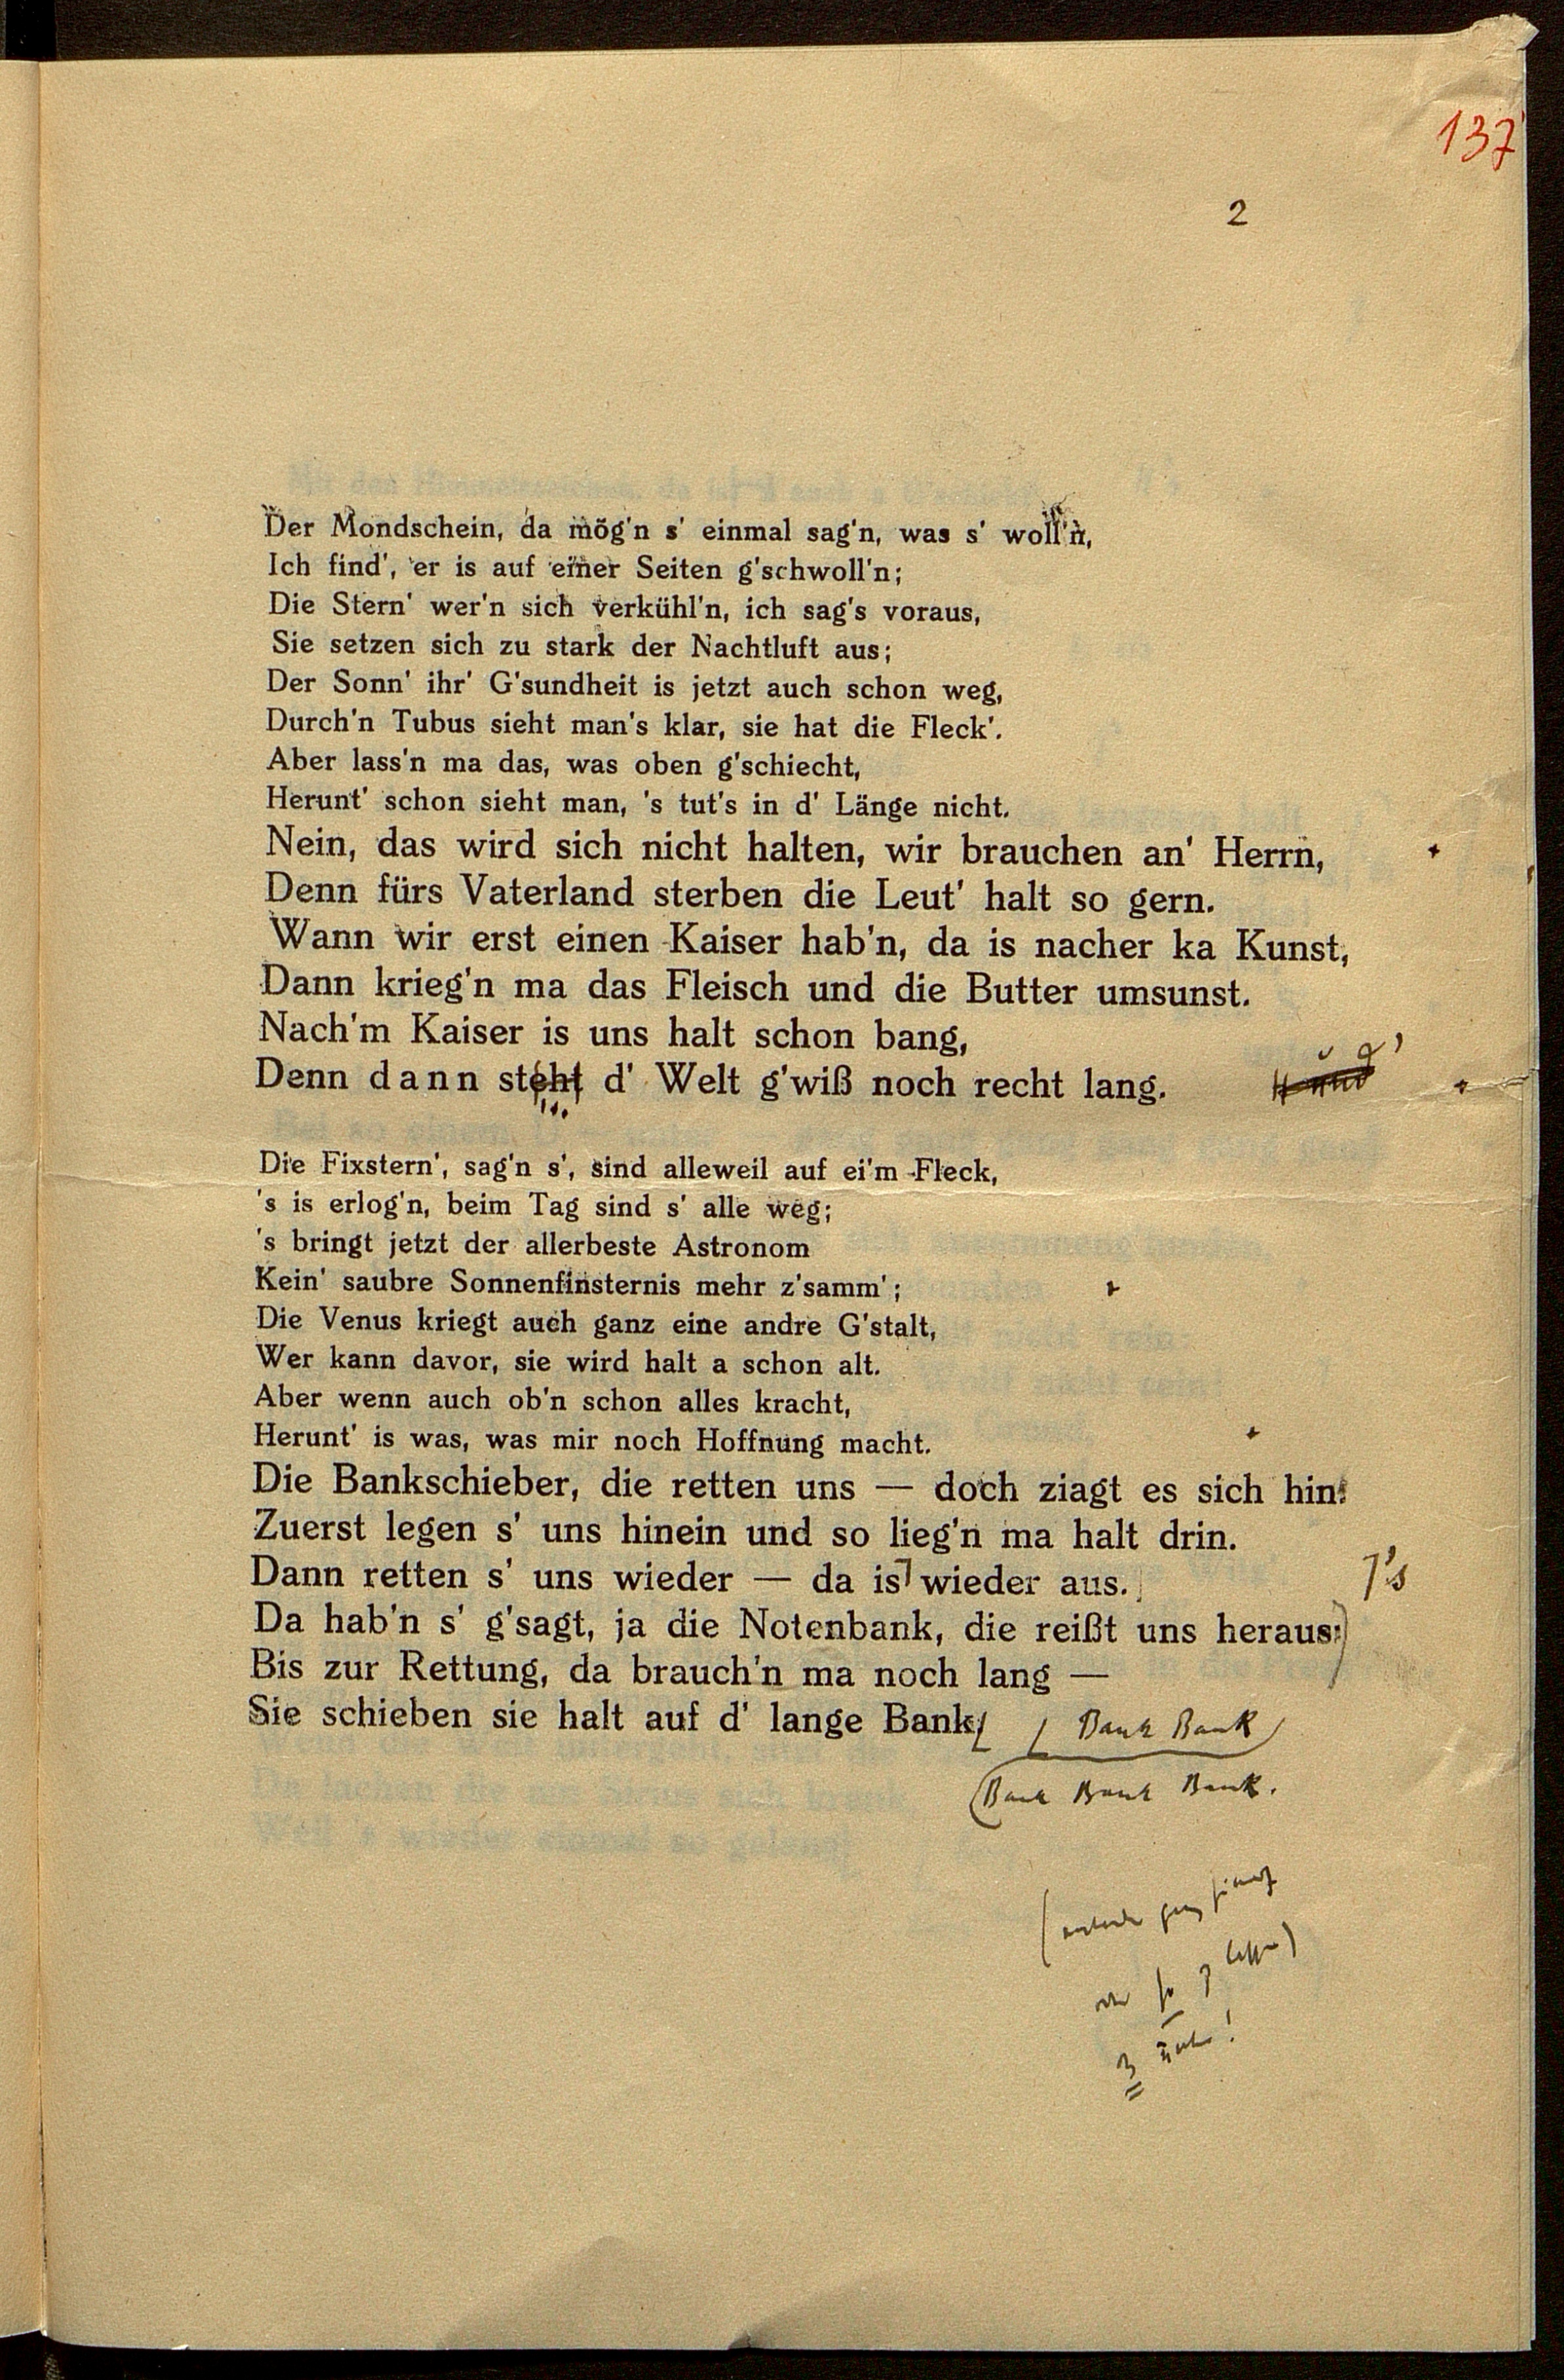 137
2
Der Mondschein, da mög'n s' einmal sag'n, was s' woll'n,
Ich find', er is auf einer Seiten g'schwoll'n;
Die Stern' wer'n sich verkühl'n, ich sag's voraus,
Sie setzen sich zu stark der Nachtluft aus;
Der Sonn' ihr' G'sundheit is jetzt auch schon weg,
Durch'n Tubus sieht man's klar, sie hat die Fleck'.
Aber lass'n ma das, was oben g'schiecht,
Herunt' schon sieht man, 's tut's in d' Länge nicht.
Nein, das wird sich nicht halten, wir brauchen an' Herrn,
Denn fürs Vaterland sterben die Leut' halt so gern.
Wann wir erst einen Kaiser hab'n, da is nacher ka Kunst,
Dann krieg'n ma das Fleisch und die Butter umsunst.
Nach'm Kaiser is uns halt schon bang,
Denn dann steht d' Welt g'wiß noch recht lang.
Die Fixstern', sag'n s', sind alleweil auf ei'm Fleck,
's is erlog'n, beim Tag sind s' alle weg;
's bringt jetzt der allerbeste Astronom
Kein' saubre Sonnenfinsternis mehr z'samm';
Die Venus kriegt auch ganz eine andre G'stalt,
Wer kann davor, sie wird halt a schon alt.
Aber wenn auch ob'n schon alles kracht,
Herunt' is was, was mir noch Hoffnung macht.
Die Bankschieber, die retten uns — doch ziagt es sich hin:
Zuerst legen s' uns hinein und so lieg'n ma halt drin.
Dann retten s' uns wieder — da is wieder aus. 's
Da hab'n s' g'sagt, ja die Notenbank, die reißt uns heraus:
Bis zur Rettung, da brauch'n ma noch lang —
Sie schieben sie halt auf d' lange Bank, Bank Bank
Bank Bank Bank.
3